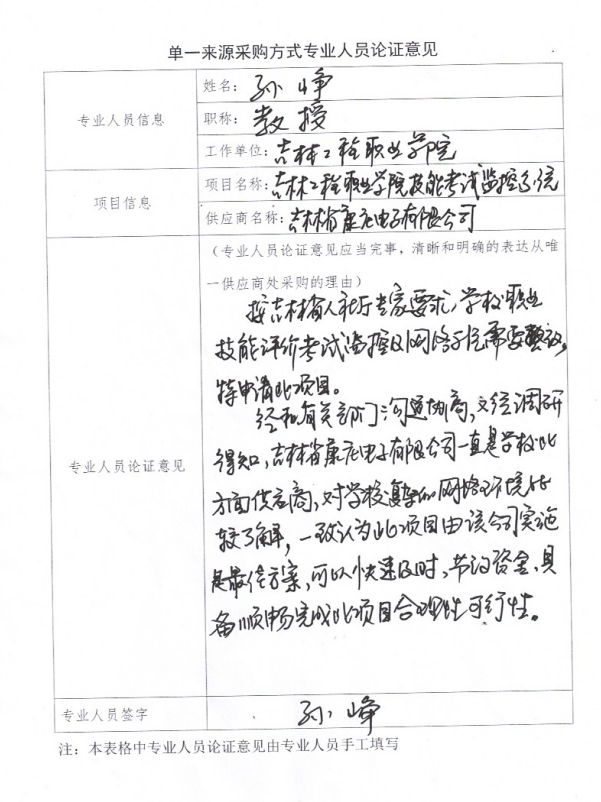 单一来源采购方式专业人员论证意见
专业人员信息
姓名：孙峥
职称：教授
工作单位：吉林工程职业学院
项目信息
项目名称：吉林工程职业学院技能考试监控系统
供应商名称：吉林省康庄电子有限公司
专业人员论证意见
（专业人员论证意见应当完事，清晰和明确的表达从唯
一供应商处采购的理由）
按吉林省人社厅专家要求，学校职业
技能评价考试监控及网络系统需要整改，
特申请此项目。
经和有关部门沟通协商，又经调研
得知，吉林省康庄电子有限公司一直是学校此
方面供应商，对学校复杂的网络环境比
较了解，一致认为此项目由该公司实施
是最佳方案，可以快速及时，节约资金，具
备顺畅完成此项目合理性可行性。
专业人员签字
孙峥
注：本表格中专业人员论证意见由专业人员手工填写